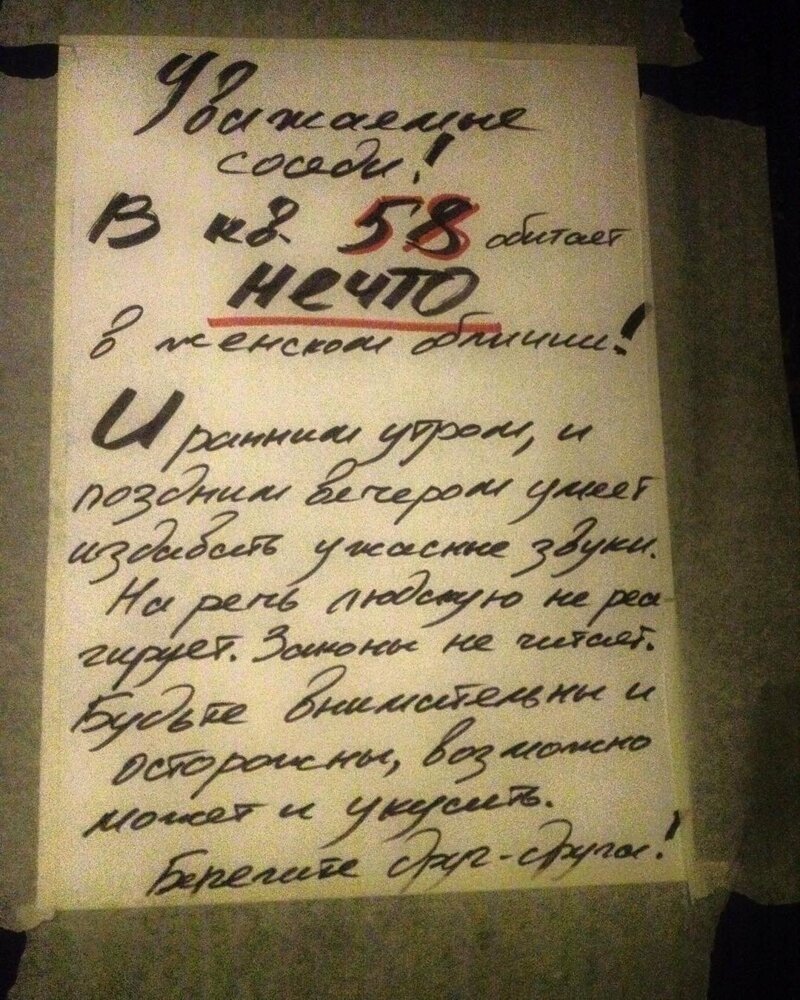 Уважаемые
соседи!
В кв. 58 обитает
нечто
в женском обличии!
И ранним утром, и
поздним вечером умеет
издавать ужасные звуки.
На речь людскую не реа-
гирует. Законы не читает.
Будьте внимательны и
осторожны, возможно
может и укусить.
Берегите друг-друга!